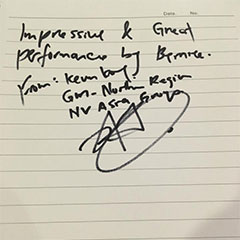 Date. No.
Impressive & Great
performance by Bernice.
From: Kevin
GM - North Region
NV Asia Group